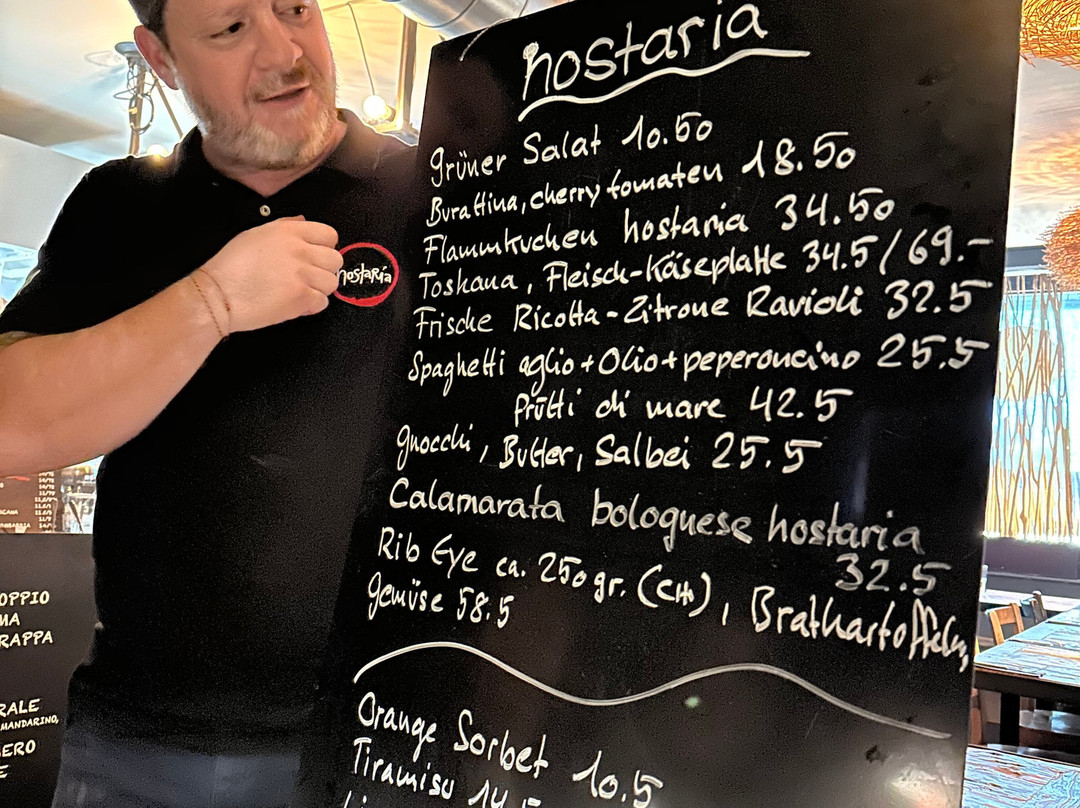 hostaria
Grüner Salat 10.50
Burattina, cherry tomaten 18.50
Flammkuchen hostaria 34.50
Toskana, Fleisch-Käseplatte 34.5/69.-
Frische Ricotta-Zitrone Ravioli 32.5
Spaghetti aglio+Olio+peperoncino 25.5
frutti di mare 42.5
Gnocchi, Butter, Salbei 25.5
Calamarata bolognese hostaria
32.5
Rib Eye ca. 250gr. (CH), Bratkartoffeln,
Gemüse 58.5
Orange Sorbet 10.5
Tiramisu 14.5
hostaria
OPPIO
MA
RAPPA
RALE
MANDARINO,
ERO
E